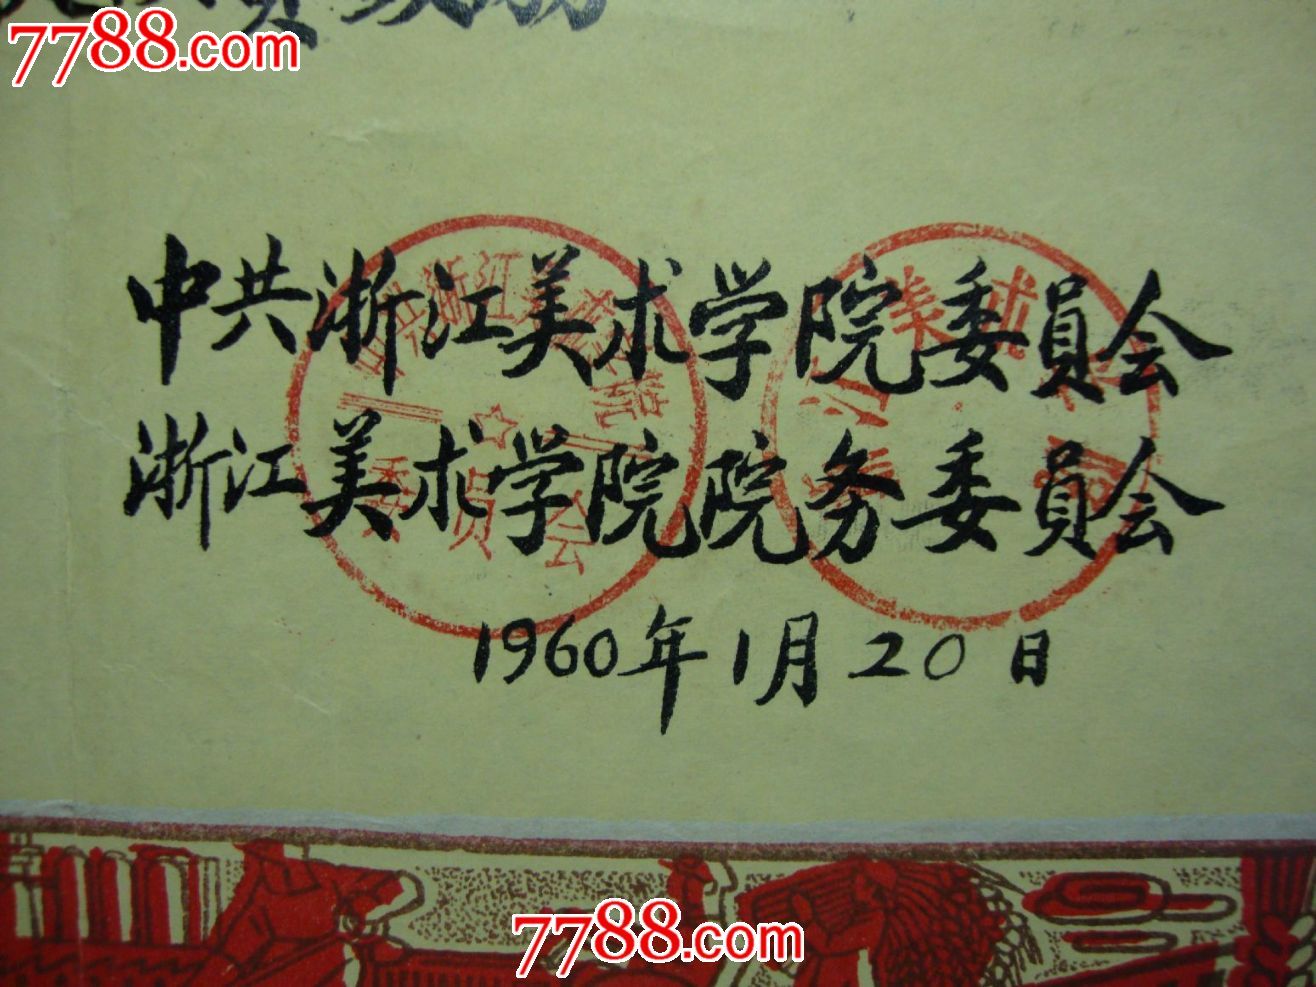 7788.com
中共浙江美术学院委員会
浙江美术学院院务委員会
1960年1月20日
7788.com